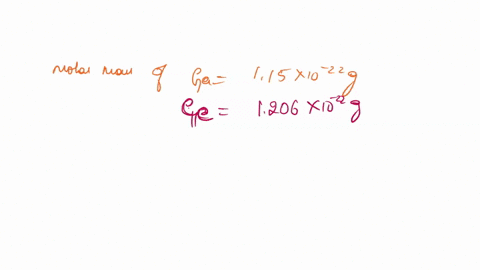 molar mass of Ga = 1.15 × 10⁻²² g
Ge = 1.206 × 10⁻²² g